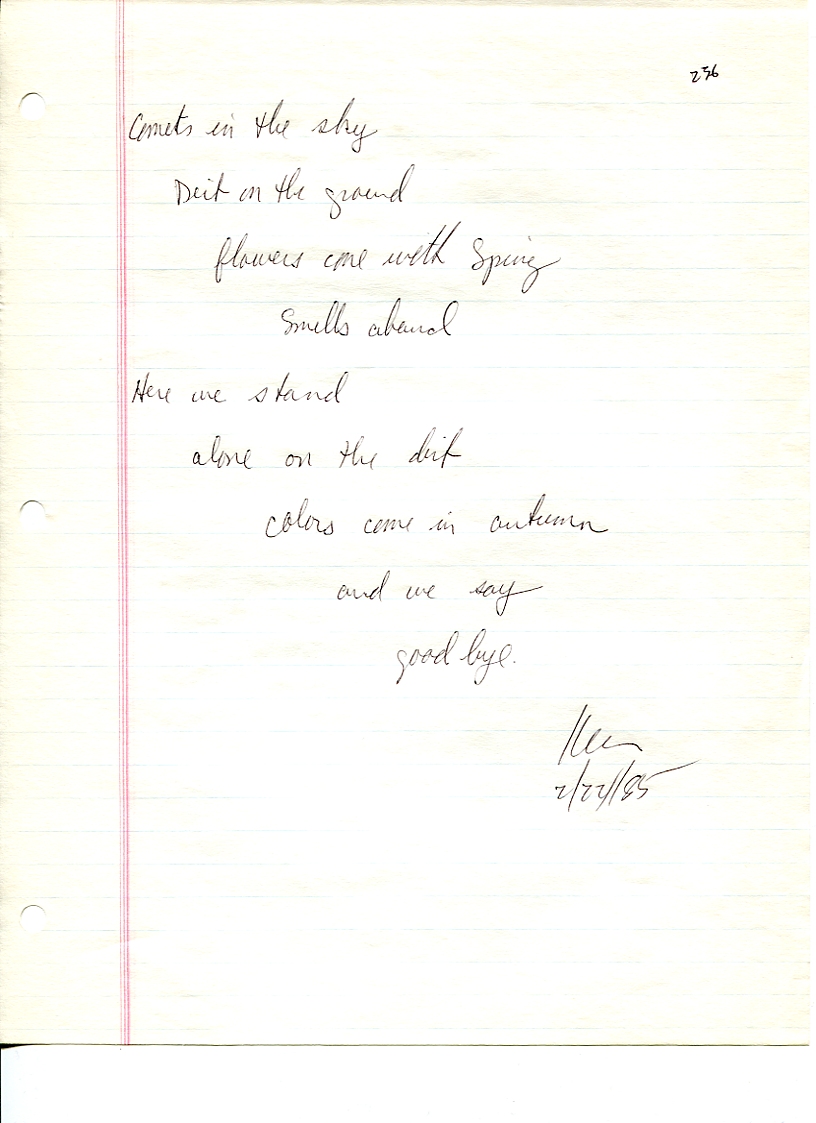 236
Comets in the sky
Dirt on the ground
flowers come with Spring
Smells abound
Here we stand
alone on the dirt
colors come in autumn
and we say
good bye.
2/22/85